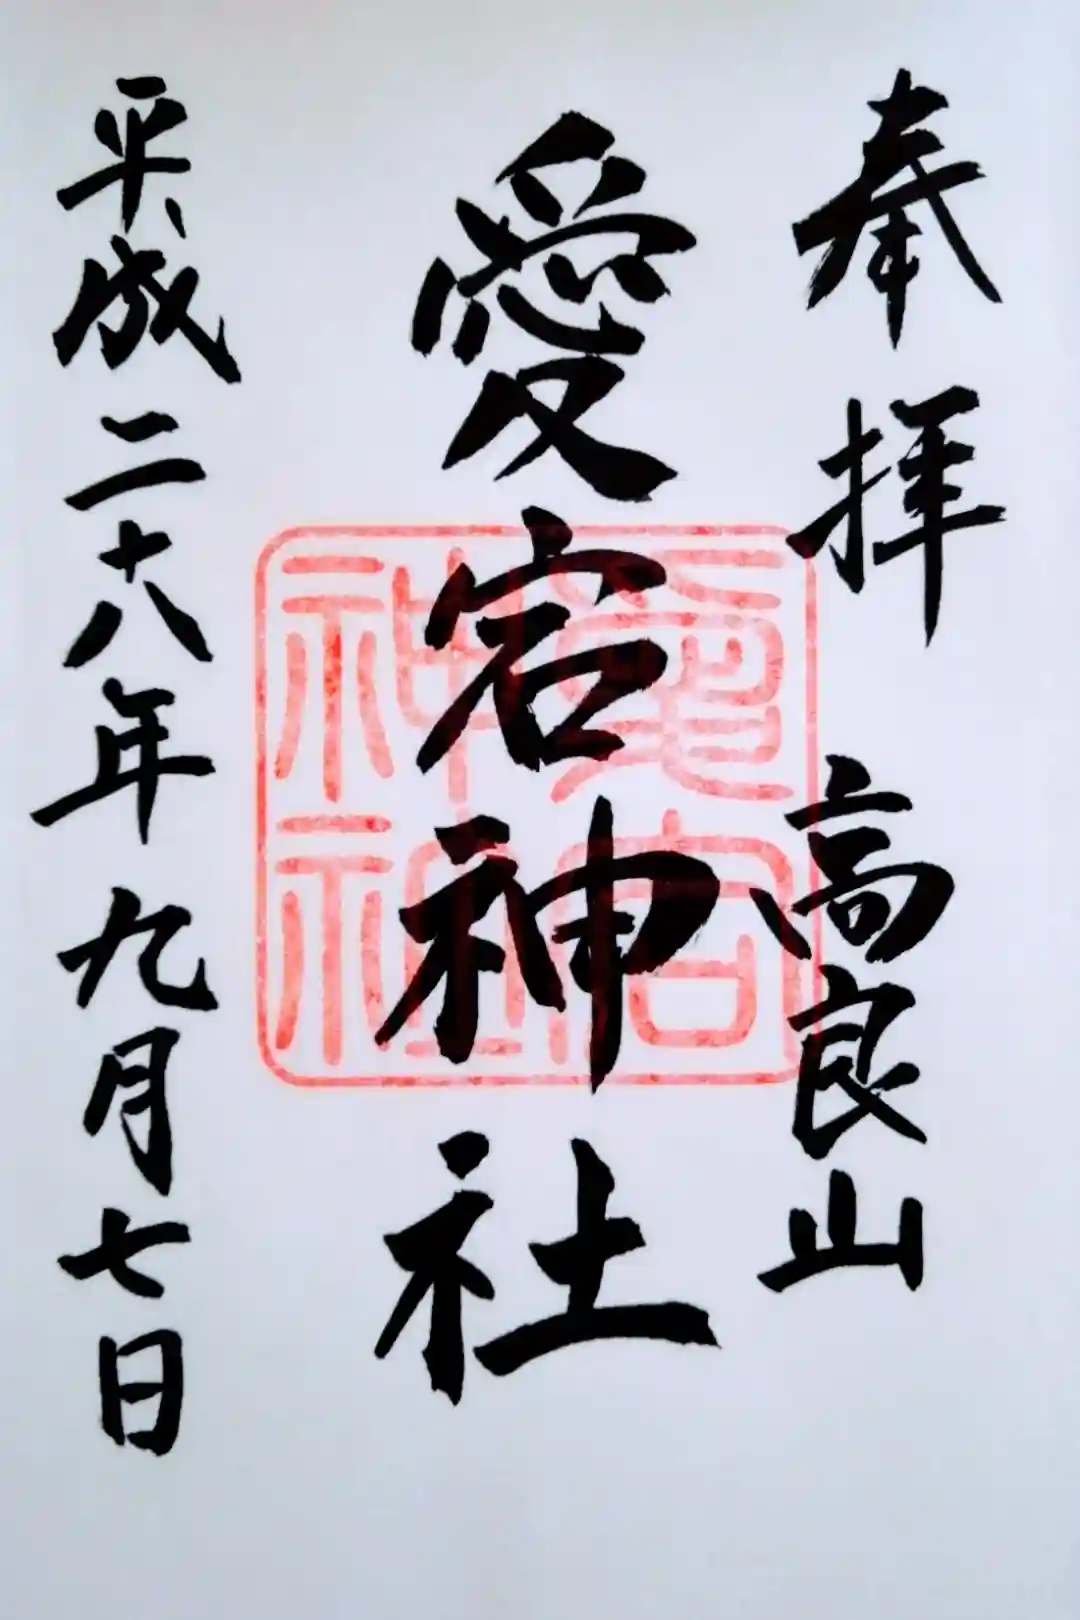 奉拝
高良山
愛宕神社
愛宕神社
平成二十八年九月七日